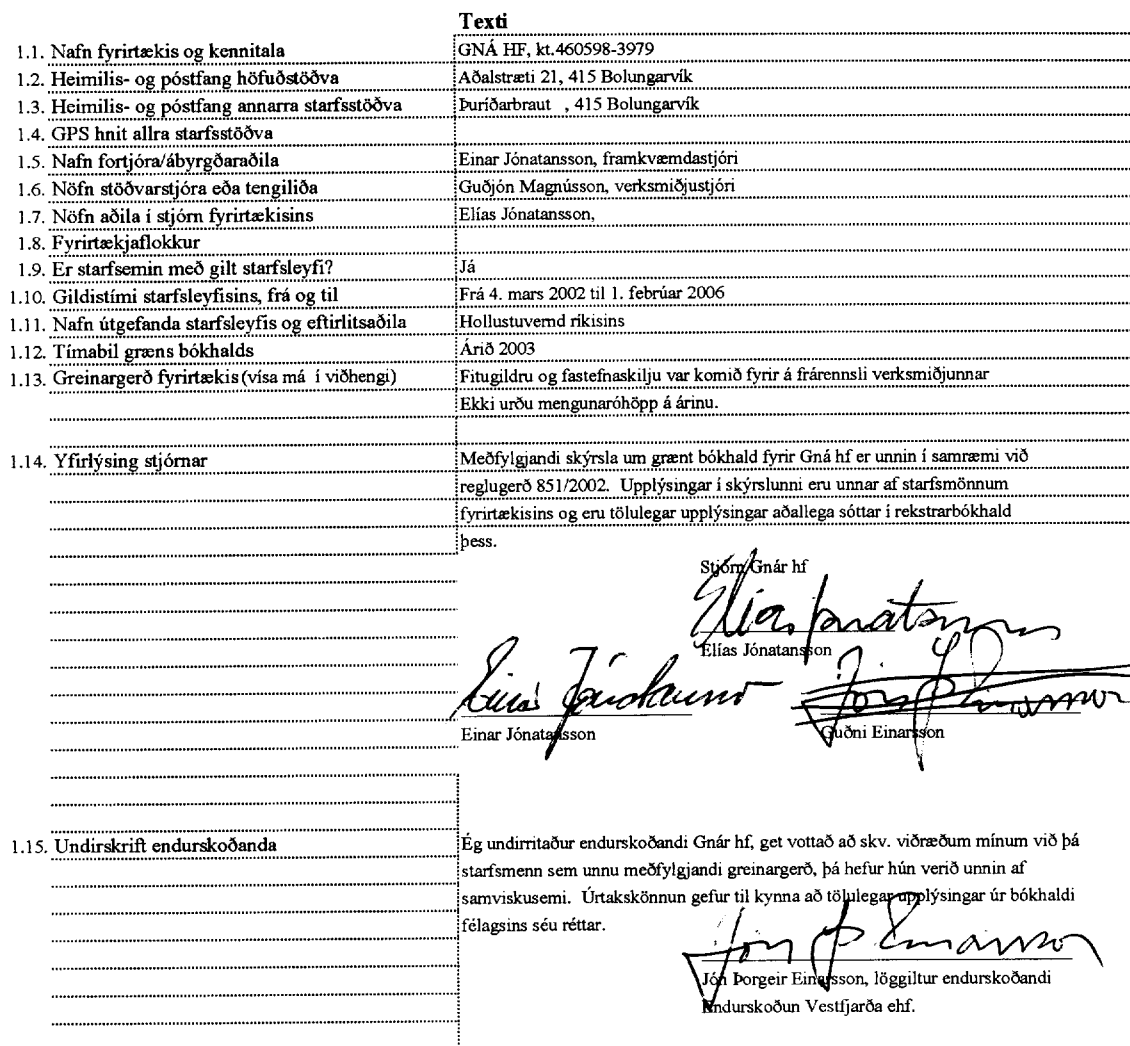 Texti
1.1. Nafn fyrirtækis og kennitala GNÁ HF, kt.460598-3979
1.2. Heimilis- og póstfang höfuðstöðva Aðalstræti 21, 415 Bolungarvík
1.3. Heimilis- og póstfang annarra starfsstöðva Þuríðarbraut , 415 Bolungarvík
1.4. GPS hnit allra starfsstöðva
1.5. Nafn fortjóra/ábyrgðaraðila Einar Jónatansson, framkvæmdastjóri
1.6. Nöfn stöðvarstjóra eða tengiliða Guðjón Magnússon, verksmiðjustjóri
1.7. Nöfn aðila í stjórn fyrirtækisins Elías Jónatansson,
1.8. Fyrirtækjaflokkur
1.9. Er starfsemin með gilt starfsleyfi? Já
1.10. Gildistími starfsleyfisins, frá og til Frá 4. mars 2002 til 1. febrúar 2006
1.11. Nafn útgefanda starfsleyfis og eftirlitsaðila Hollustuvernd ríkisins
1.12. Tímabil græns bókhalds Árið 2003
1.13. Greinargerð fyrirtækis (vísa má í viðhengi) Fitugildru og fastefnaskilju var komið fyrir á frárennsli verksmiðjunnar
Ekki urðu mengunaróhöpp á árinu.
1.14. Yfirlýsing stjórnar Meðfylgjandi skýrsla um grænt bókhald fyrir Gná hf er unnin í samræmi við
reglugerð 851/2002. Upplýsingar í skýrslunni eru unnar af starfsmönnum
fyrirtækisins og eru tölulegar upplýsingar aðallega sóttar í rekstrarbókhald
þess.
Stjórn Gnár hf
Elías Jónatansson
Elías Jónatansson
Einar Jónatansson
Jón Þ Einarsson
Einar Jónatansson
Guðni Einarsson
1.15. Undirskrift endurskoðanda Ég undirritaður endurskoðandi Gnár hf, get vottað að skv. viðræðum mínum við þá
starfsmenn sem unnu meðfylgjandi greinargerð, þá hefur hún verið unnin af
samviskusemi. Úrtakskönnun gefur til kynna að tölulegar upplýsingar úr bókhaldi
félagsins séu réttar.
Jón Þ Einarsson
Jón Þorgeir Einarsson, löggiltur endurskoðandi
Endurskoðun Vestfjarða ehf.